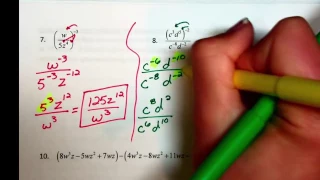 7. (w/5z⁴)⁻³
w⁻³/5⁻³z⁻¹²
5³z¹²/w³ = 125z¹²/w³
8.
c⁻⁶d⁻¹⁰/c⁻⁸d⁻²
c⁸d²/c⁶d¹⁰
10. (8w³z-5wz²+7wz)-(4w³z-8wz²+11wz